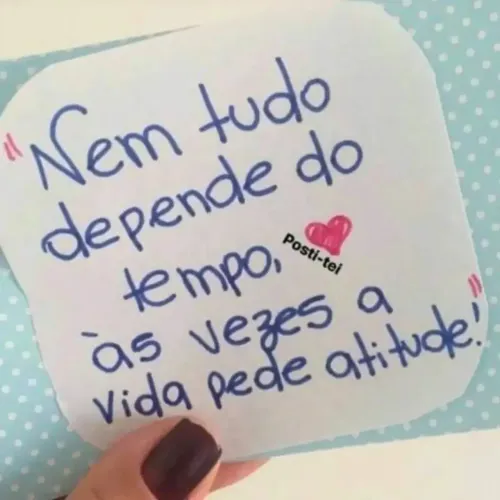 "Nem tudo
depende do
tempo,
Posti-tei
às vezes a
vida pede atitude!"